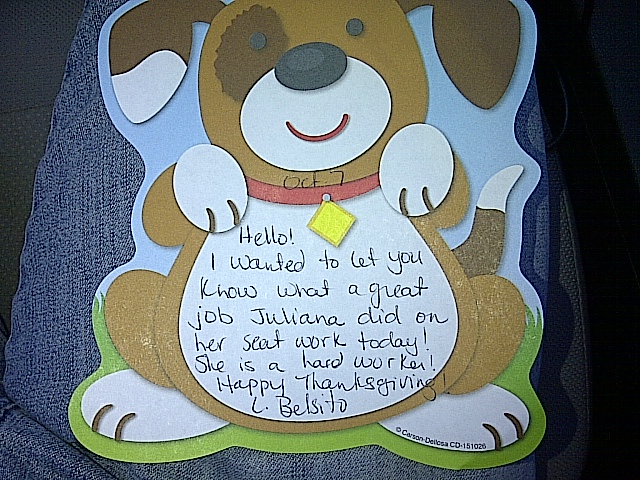 Oct 7
Hello!
I wanted to let you
know what a great
job Juliana did on
her seat work today!
She is a hard worker!
Happy Thanksgiving!
L. Belsito
© Carson-Dellosa CD-151026